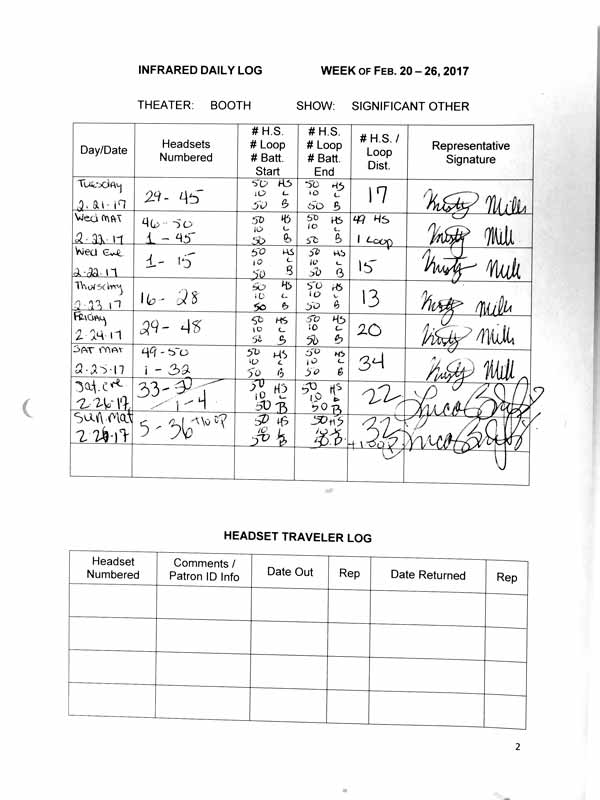 INFRARED DAILY LOG WEEK OF FEB. 20 – 26, 2017
THEATER: BOOTH SHOW: SIGNIFICANT OTHER
Day/Date Headsets Numbered # H.S. # Loop # Batt. Start # H.S. # Loop # Batt. End # H.S. / Loop Dist. Representative Signature
Tuesday 2.21.17 29 - 45 50 HS 10 L 50 B 50 HS 10 L 50 B 17 Kristy Mills
Wed MAT 2.22.17 46-50 1 - 45 50 HS 10 L 50 B 50 HS 10 L 50 B 49 HS 1 Loop Kristy Mill
Wed Eve 2.22.17 1 - 15 50 HS 10 L 50 B 50 HS 10 L 50 B 15 Kristy Mill
2.23.17 16 - 28 50 HS 10 L 50 B 50 HS 10 L 50 B 13 Kristy Mills
FRIDAY 2.24.17 29 - 48 50 HS 10 L 50 B 50 HS 10 L 50 B 20 Kristy Mills
SAT MAT 2.25.17 49-50 1 - 32 50 HS 10 L 50 B 50 HS 10 L 50 B 34 Kristy Mill
Sat. eve 2.26.17 33- 1-4 50 HS 10 L 50 B 50 HS 10 50 B 22
Sun mat 2 26.17 5 - 36 50 HS 10 L 50 B 50 HS 10 50 B 32 +1 loop
HEADSET TRAVELER LOG
Headset Numbered Comments / Patron ID Info Date Out Rep Date Returned Rep
2